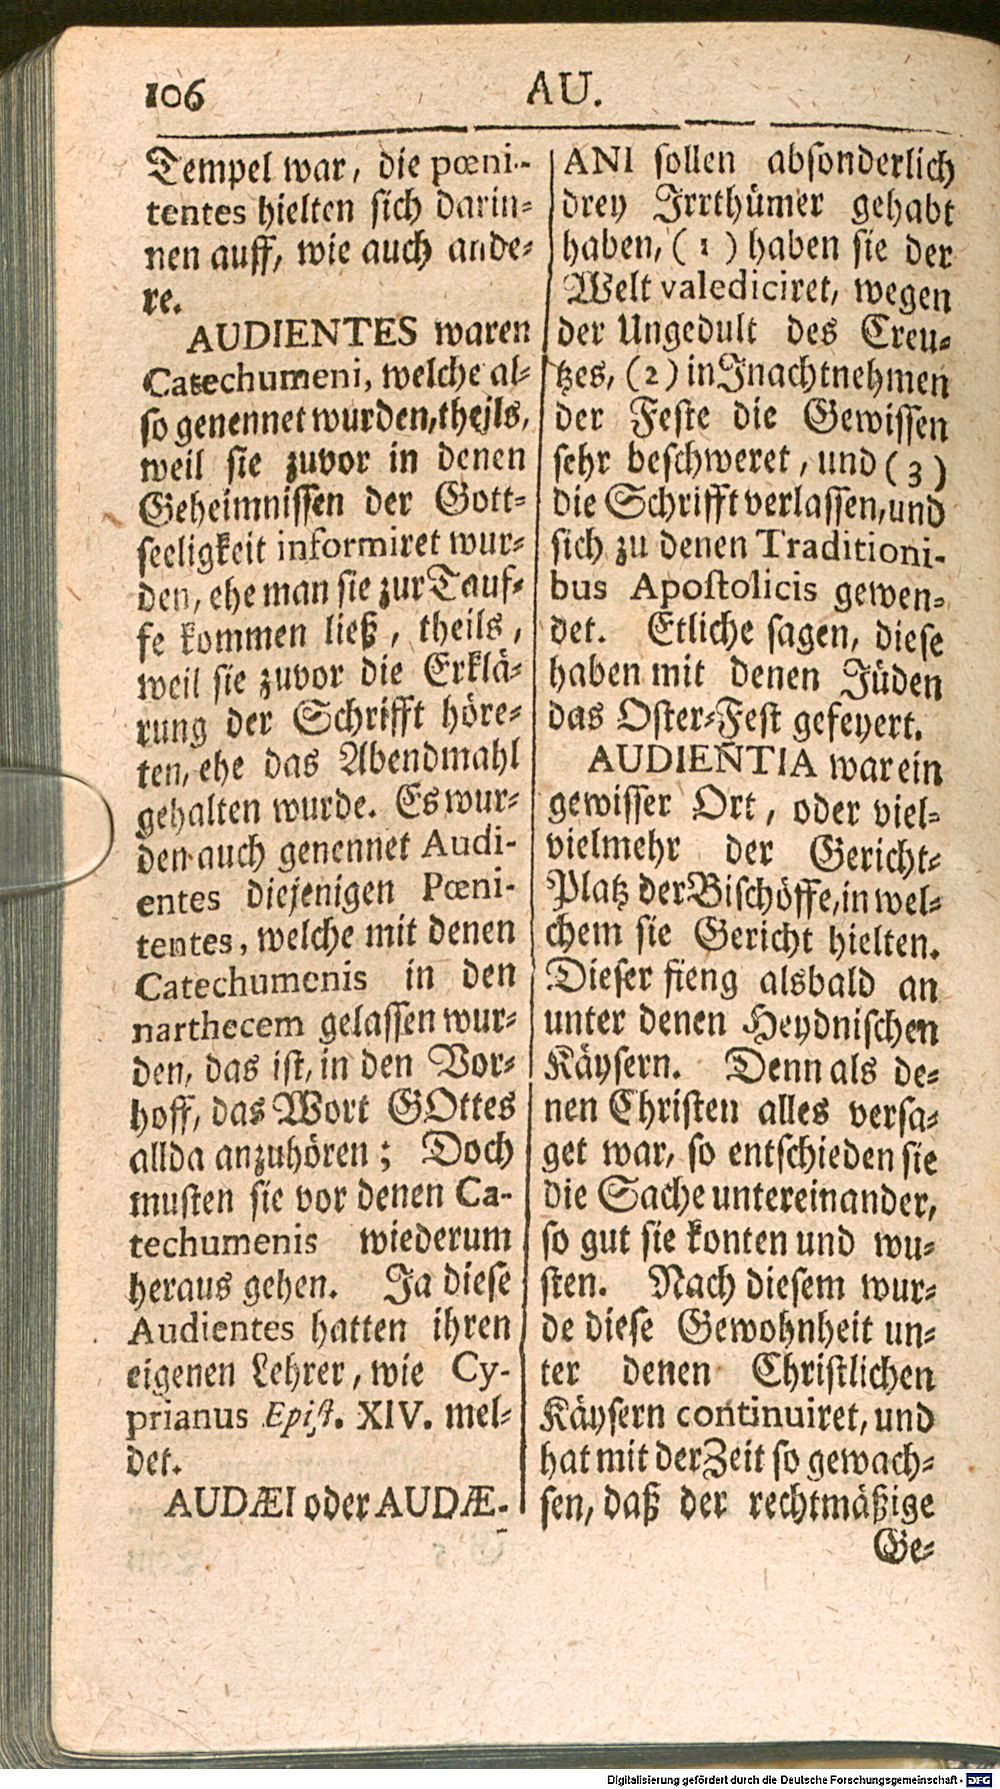 106
AU.
Tempel war, die pœni-
tentes hielten sich darin-
nen auff, wie auch ande-
re.
AUDIENTES waren
Catechumeni, welche al-
so genennet wurden, theils,
weil sie zuvor in denen
Geheimnissen der Gott-
seeligkeit informiret wur-
den, ehe man sie zur Tauf-
fe kommen ließ, theils,
weil sie zuvor die Erklä-
rung der Schrifft höre-
ten, ehe das Abendmahl
gehalten wurde. Es wur-
den auch genennet Audi-
entes diejenigen Pœni-
tentes, welche mit denen
Catechumenis in den
narthecem gelassen wur-
den, das ist, in den Vor-
hoff, das Wort GOttes
allda anzuhören; Doch
musten sie vor denen Ca-
techumenis wiederum
heraus gehen. Ja diese
Audientes hatten ihren
eigenen Lehrer, wie Cy-
prianus Epist. XIV. mel-
det.
AUDÆI oder AUDÆ-
ANI sollen absonderlich
drey Irrthümer gehabt
haben, (1) haben sie der
Welt valediciret, wegen
der Ungedult des Creu-
tzes, (2) in Inachtnehmen
der Feste die Gewissen
sehr beschweret, und (3)
die Schrifft verlassen, und
sich zu denen Traditioni-
bus Apostolicis gewen-
det. Etliche sagen, diese
haben mit denen Jüden
das Oster-Fest gefeyert.
AUDIENTIA war ein
gewisser Ort, oder viel-
vielmehr der Gericht-
Platz der Bischöffe, in wel-
chem sie Gericht hielten.
Dieser fieng alsbald an
unter denen Heydnischen
Käysern. Denn als de-
nen Christen alles versa-
get war, so entschieden sie
die Sache untereinander,
so gut sie konten und wu-
sten. Nach diesem wur-
de diese Gewohnheit un-
ter denen Christlichen
Käysern continuiret, und
hat mit der Zeit so gewach-
sen, daß der rechtmäßige
Ge-
Digitalisierung gefördert durch die Deutsche Forschungsgemeinschaft - DFG